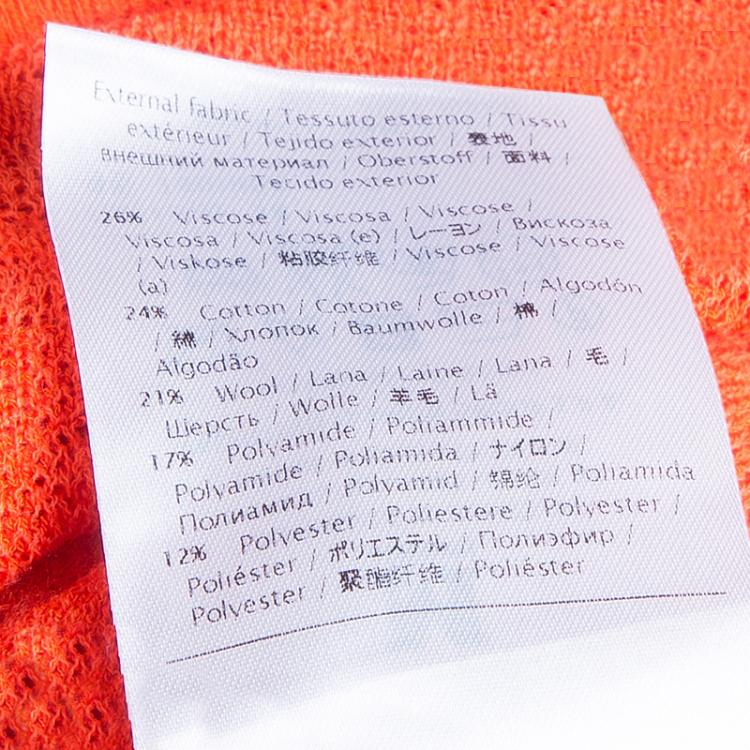 External fabric / Tessuto esterno / Tissu
extérieur / Tejido exterior / 表地 /
внешний материал / Oberstoff / 面料 /
Tecido exterior
26% Viscose / Viscosa / Viscose /
Viscosa / Viscosa (e) / レーヨン / Вискоза
/ Viskose / 粘胶纤维 / Viscose / Viscose
(a)
24% Cotton / Cotone / Coton / Algodón
/ 綿 / Хлопок / Baumwolle / 棉 /
Algodão
21% Wool / Lana / Laine / Lana / 毛 /
Шерсть / Wolle / 羊毛 / Lã
17% Polyamide / Poliammide /
Polyamide / Poliamida / ナイロン /
Полиамид / Polyamid / 锦纶 / Poliamida
12% Polyester / Poliestere / Polyester /
Poliéster / ポリエステル / Полиэфир /
Polyester / 聚酯纤维 / Poliéster